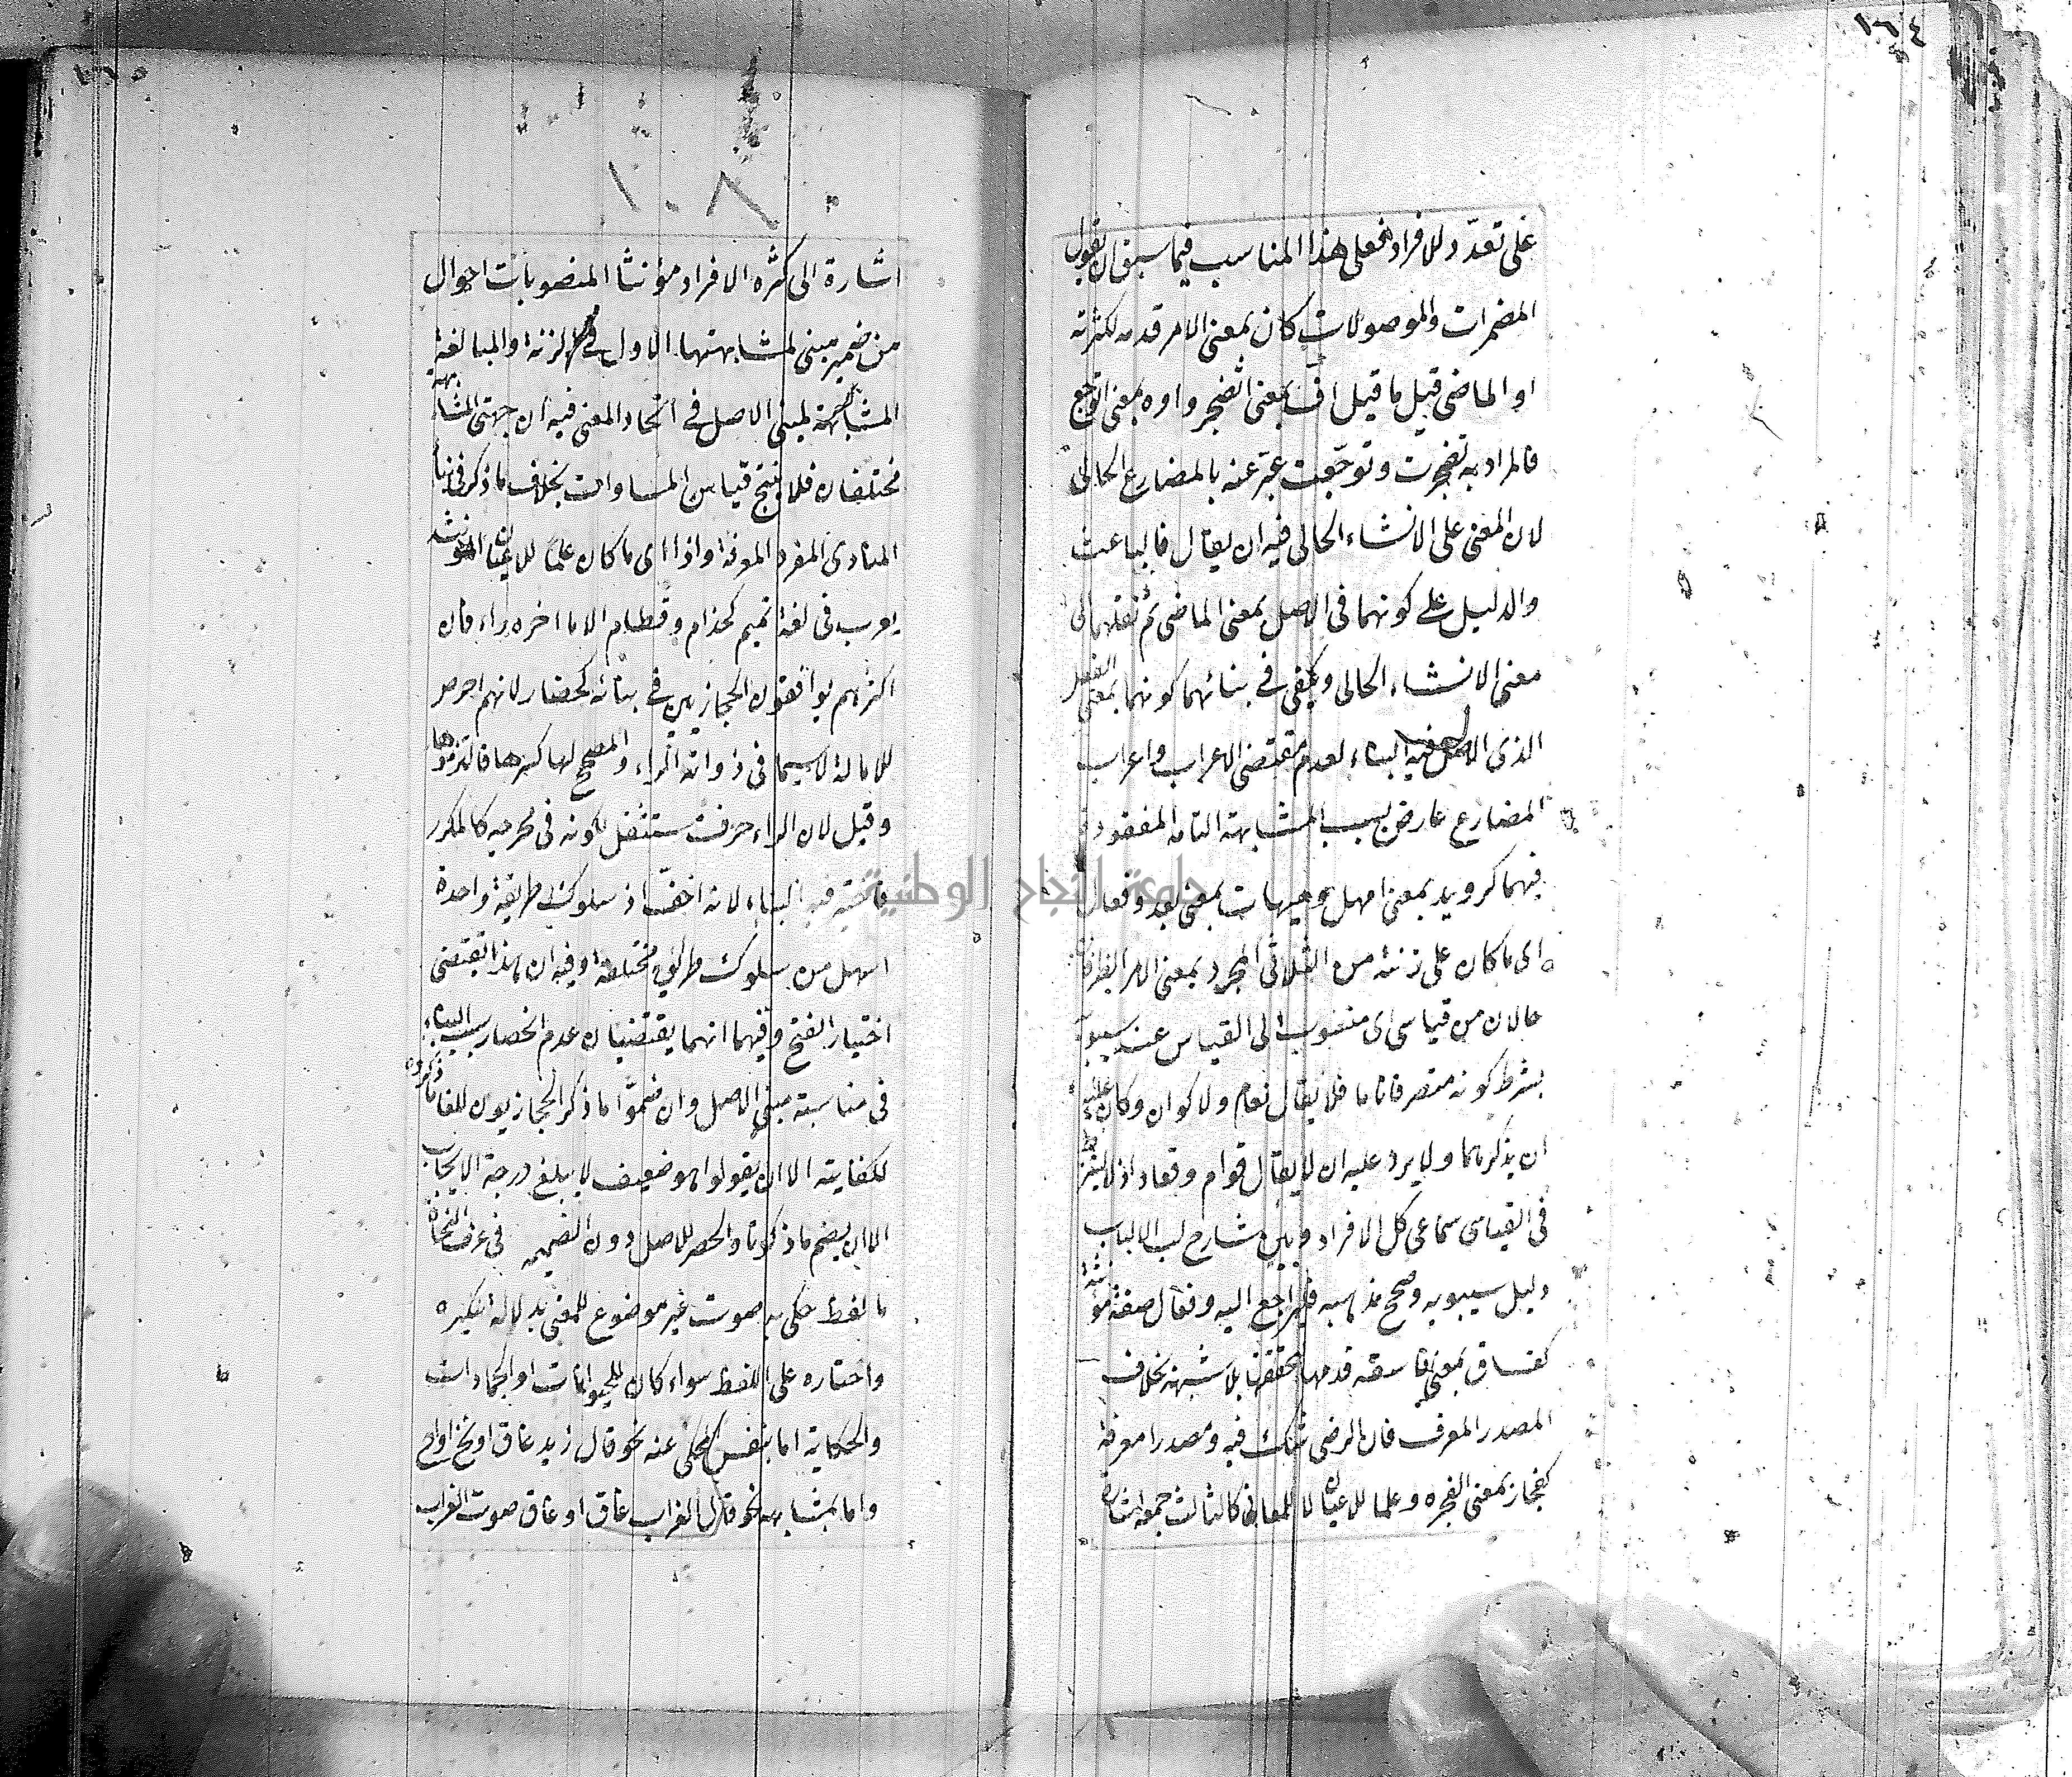 ١٦٤
على تعدد للافراد فعلى هذا المناسب فيما سبق ان يقول
المضمرات والموصولات كان بمعنى الامر قدمه لكثرته
او الماضى قيل ما قيل اف بمعنى اتضجر واوه بمعنى اتوجع
فالمراد به تضجرت وتوجعت عبر عنه بالمضارع الحالى
لان المعنى على الانشاء الحالى فيه ان يقال فالباعث
والدليل على كونهما فى الاصل بمعنى الماضى ثم نقلهما الى
معنى الانشاء الحالى ويكفى فى بنائهما كونهما بمعنى الفعل
الذى الاصل فيه البناء لعدم مقتضى الاعراب واعراب
المضارع عارض بسبب المشابهة التامه المفقودة
فيهما كرويد بمعنى امهل وهيهات بمعنى بعد وفعال
اى ما كان على زنته من الثلاثى المجرد بمعنى الامر الظرفان
حالان من قياسى اى منسوب الى القياس عند سيبويه
بشرط كونه متصرفا تاما فلا يقال نعام ولا كوان وكان عليه
ان يذكرهما ولا يرد عليه ان لا يقال قوام وقعاد اذ لا يشترط
فى القياسى سماعى كل الافراد وبين شارح لب الالباب
دليل سيبويه وصحح مذهبه فليراجع اليه وفعال صفة مؤنثة
كفساق بمعنى فاسقه قدمها لتحققها بلا شبهة بخلاف
المصدر المعرف فان الرضى شكك فيه ومصدرا معرفة
كفجار بمعنى الفجره وعلما للاعيان لا للمعانى كالثالث جمعه اشارة
١٦٥
١٠٨
اشارة الى كثره الافراد مؤنثا المنصوبات احوال
من ضمير مبنى لمشابهتها الاول فى الزنة والمبالغة
المشابهة لمبنى الاصل فى اتحاد المعنى فيه ان جهتى المشابهة
مختلفان فلا ينتج قياس المساوات بخلاف ما ذكر فى بناء
المنادى المفرد المعرفة واذا اى ما كان علما للاعيان المؤنثه
يعرب فى لغة تميم كحذام وقطام الا ما اخره راء فان
اكثرهم يوافقون الحجازيين فى بنائه كحضار لانهم احرص
للامالة لا سيما فى ذوات الراء والمصحح لها كسرها فالتزموها
وقيل لان الراء حرف مستثقل لكونه فى مخرجه كالمكرر
فاختير فيه البناء لانه اخف اذ سلوك طريقة واحدة
اسهل من سلوك طرائق مختلفة وفيه ان هذا يقتضى
اختيار الفتح وفيهما انهما يقتضيان عدم انحصار سبب البناء
فى مناسبة مبنى الاصل وان ضموا ما ذكر الحجازيون للغا ما ذكروه
لكفايته الا ان يقولوا هو ضعيف لا يبلغ درجة الايجاب
الا ان يضم ما ذكرنا والحصر للاصل دون الضميمه فى عرف النحاة
ما لفظ حكى به صوت غير موضوع للمعنى بدلالة تنكيره
واختاره على اللفظ سواء كان للحيوانات او الجمادات
والحكاية اما بنفس المحكى عنه نحو قال زيد غاق او نخ اواح
واما بمشابهه نحو قال الغراب غاق او غاق صوت الغراب